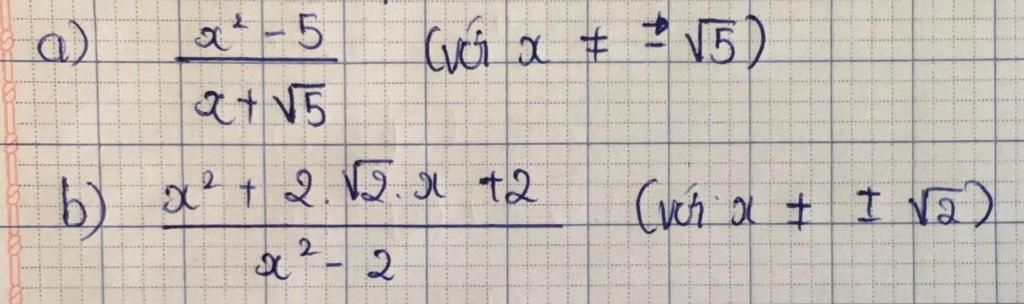 a) \frac{x² - 5}{x + √5} (với x ≠ ± √5)
b) \frac{x² + 2.√2.x + 2}{x² - 2} (với x ≠ ± √2)